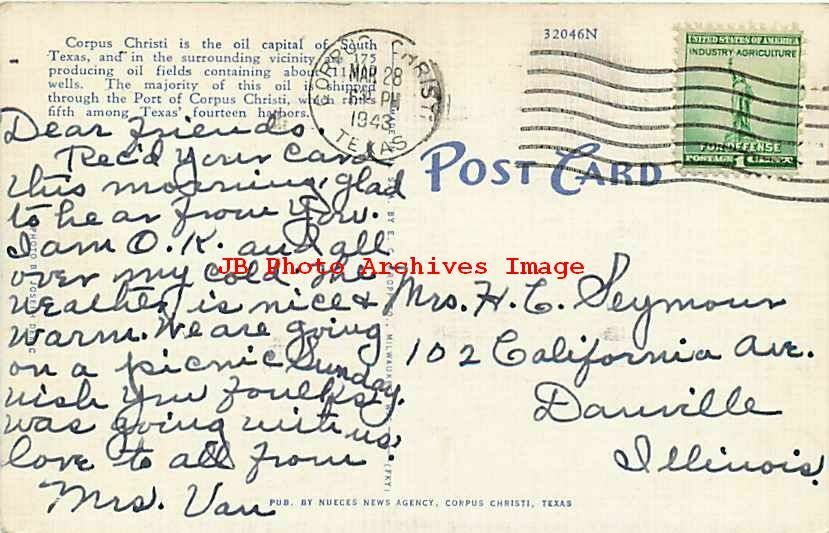 Corpus Christi is the oil capital of South
Texas, and in the surrounding vicinity are 175
producing oil fields containing about 11,000
wells. The majority of this oil is shipped
through the Port of Corpus Christi, which ranks
fifth among Texas' fourteen harbors.
32046N
CORPUS CHRISTI
MAR 28
PM
1943
TEXAS
UNITED STATES OF AMERICA
INDUSTRY-AGRICULTURE
FOR DEFENSE
POSTAGE 1 CENT
POST CARD
Dear friends.
Rec'd your card
this mourning, glad
to hear from you.
I am O.K. and all
over my cold. The
weather is nice &
warm. We are going
on a picnic Sunday.
wish you foulks
was going with us,
love to all from
Mrs. Van
Mrs. H. C. Seymour
102 California Ave.
Danville
Illinois.
JB Photo Archives Image
PHOTO BY JOSEPH
MILWAUKEE
(FKY)
PUB. BY NUECES NEWS AGENCY, CORPUS CHRISTI, TEXAS